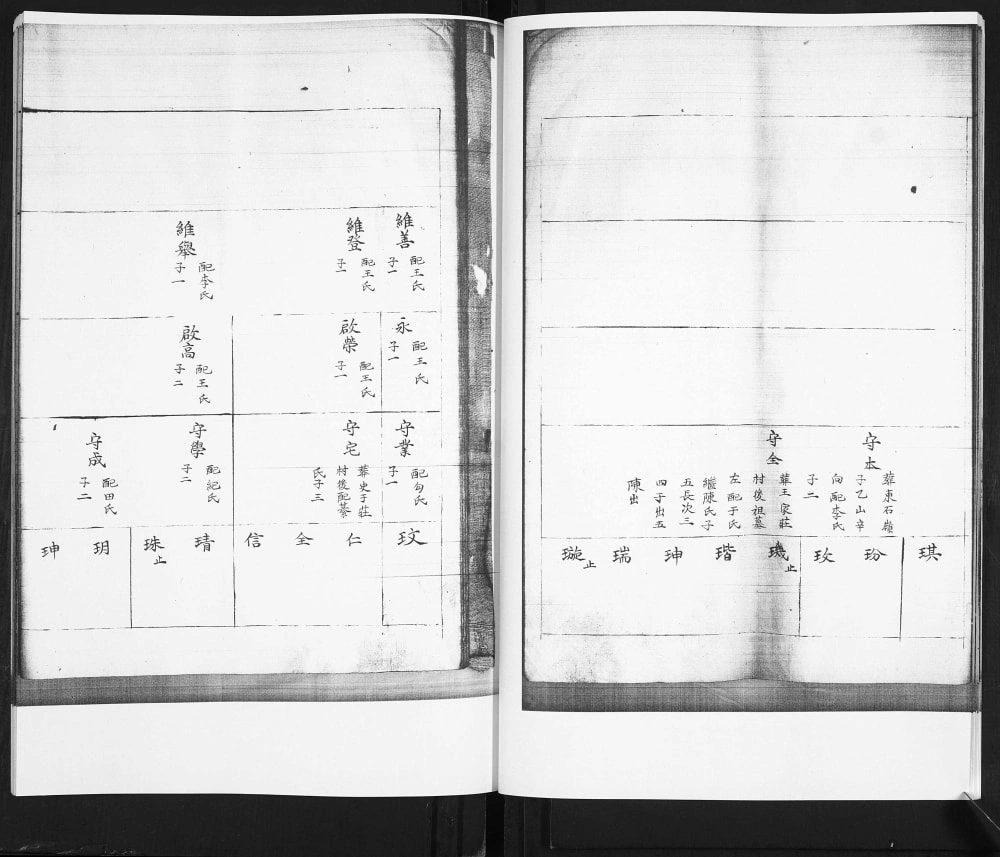 守本
葬東石嶺
子乙山辛
向配李氏
子二
守全
葬王家莊
村後祖塋
左配于氏
繼陳氏子
五長次三
四于出五
陳出
琪
玢
玫
璣止
瑎
珅
瑞
璇止
維善
配王氏
子一
維登
配王氏
子一
維舉
配李氏
子一
永
配王氏
子一
啟榮
配王氏
子一
啟高
配王氏
子二
守業
配勾氏
子一
守宅
葬史于莊
村後配綦
氏子三
守學
配紀氏
子二
守成
配田氏
子二
玟
仁
全
信
琦
珠止
玥
珅